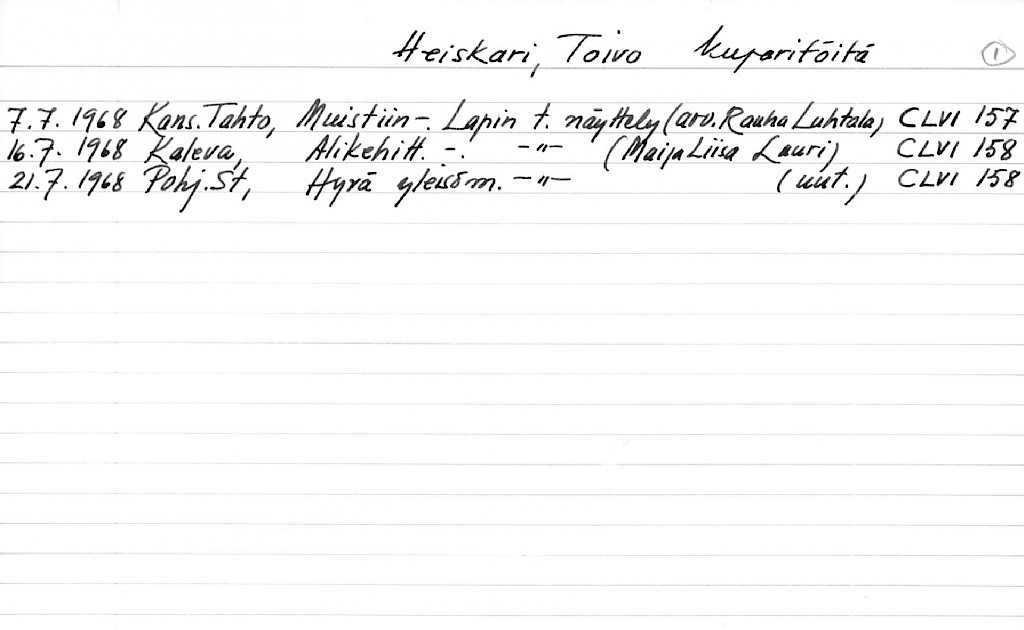 Heiskari, Toivo Kuparitöitä 1
7.7. 1968 Kans. Tahto, Muistiin -. Lapin t. näyttely (arv. Rauha Luhtala) CLVI 157
16.7. 1968 Kaleva, Alikehitt. -. -"- (Maija Liisa Lauri) CLVI 158
21.7. 1968 Pohj. St, Hyvä yleisöm. -"- (uut.) CLVI 158